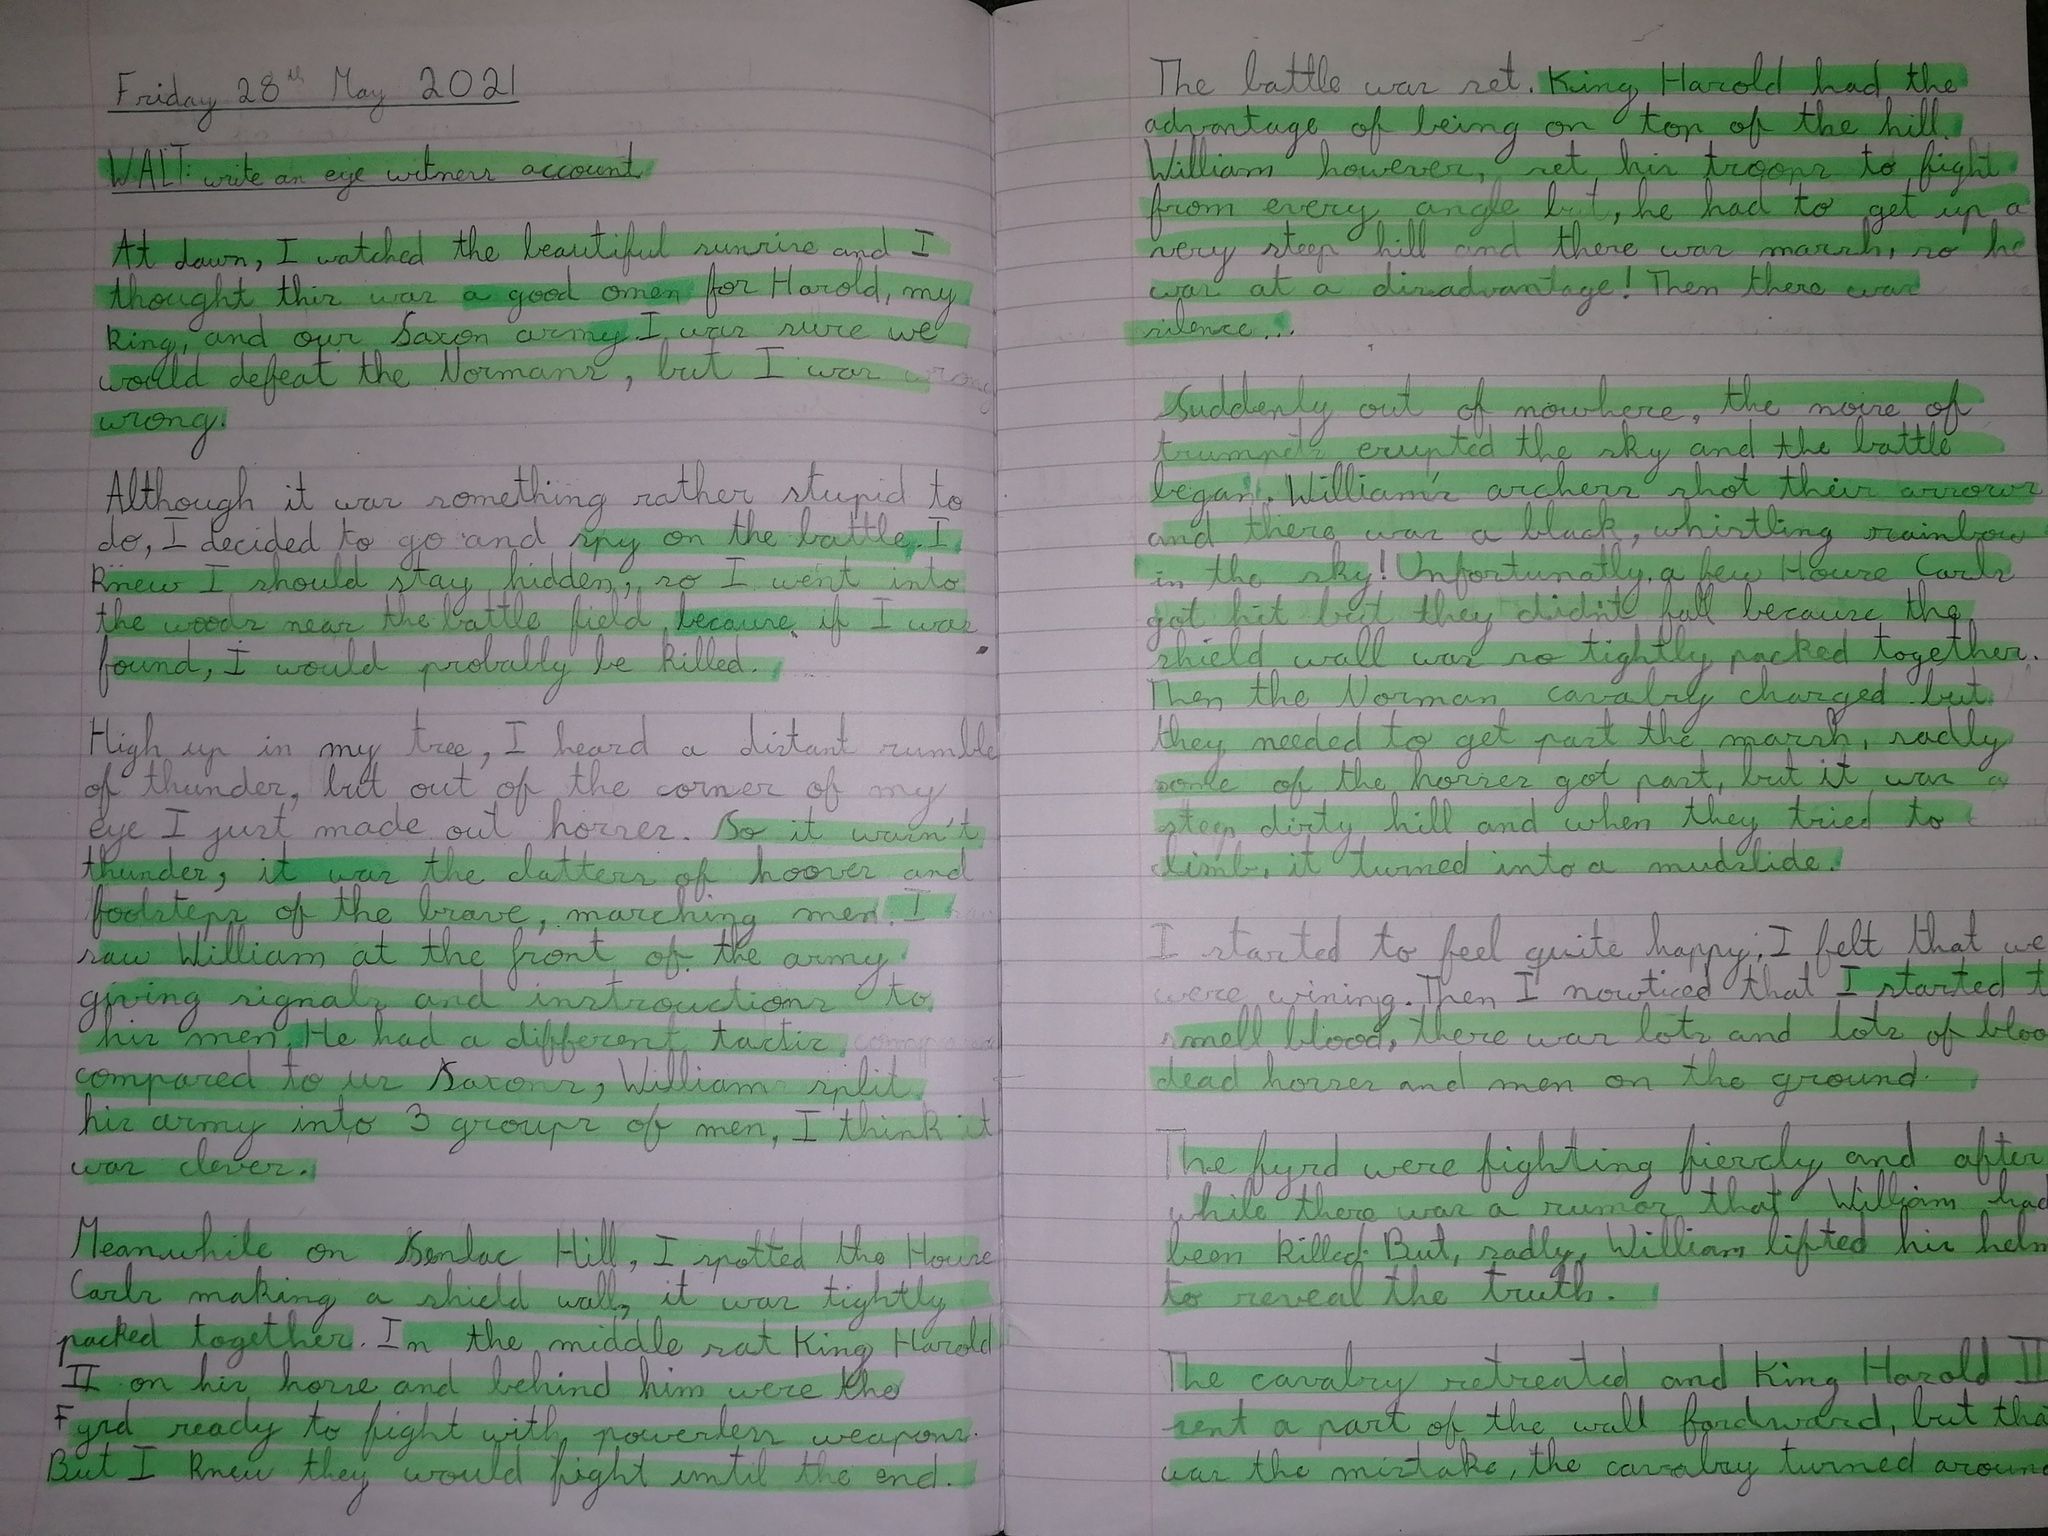 Friday 28th May 2021
WALT: write an eye witness account
At dawn, I watched the beautiful sunrise and I
thought this was a good omen for Harold, my
king, and our Saxon army. I was sure we
would defeat the Normans, but I was wrong
wrong.
Although it was something rather stupid to
do, I decided to go and spy on the battle. I
knew I should stay hidden, so I went into
the woods near the battle field, because, if I was
found, I would probably be killed.
High up in my tree, I heard a distant rumble
of thunder, but out of the corner of my
eye I just made out horses. So it wasn't
thunder, it was the clatters of hooves and
footsteps of the brave, marching men. I
saw William at the front of the army
giving signals and instructions to
his men. He had a different tactic compared
compared to us Saxons, William split
his army into 3 groups of men, I think it
was clever.
Meanwhile on Senlac Hill, I spotted the House
Carls making a shield wall, it was tightly
packed together. In the middle sat King Harold
II on his horse and behind him were the
Fyrd ready to fight with powerless weapons.
But I knew they would fight until the end.
The battle was set. King Harold had the
advantage of being on top of the hill.
William however, set his troops to fight
from every angle but, he had to get up a
very steep hill and there was marsh, so he
was at a disadvantage! Then there was
silence...
Suddenly out of nowhere, the noise of
trumpets erupted the sky and the battle
began. William's archers shot their arrows
and there was a black, whistling rainbow
in the sky! Unfortunatly, a few House Carls
got hit but they didn't fall because the
shield wall was so tightly packed together.
Then the Norman cavalry charged but
they needed to get past the marsh, sadly
some of the horses got past, but it was a
steep dirty hill and when they tried to
climb, it turned into a mudslide.
I started to feel quite happy, I felt that we
were wining. Then I nowticed that I started t
smell blood, there was lots and lots of bloo
dead horses and men on the ground.
The fyrd were fighting fiercly and after
while there was a rumor that William had
been killed. But, sadly, William lifted his helm
to reveal the truth.
The cavalry retreated and King Harold II
sent a part of the wall fordward, but tha
was the mistake, the cavalry turned around